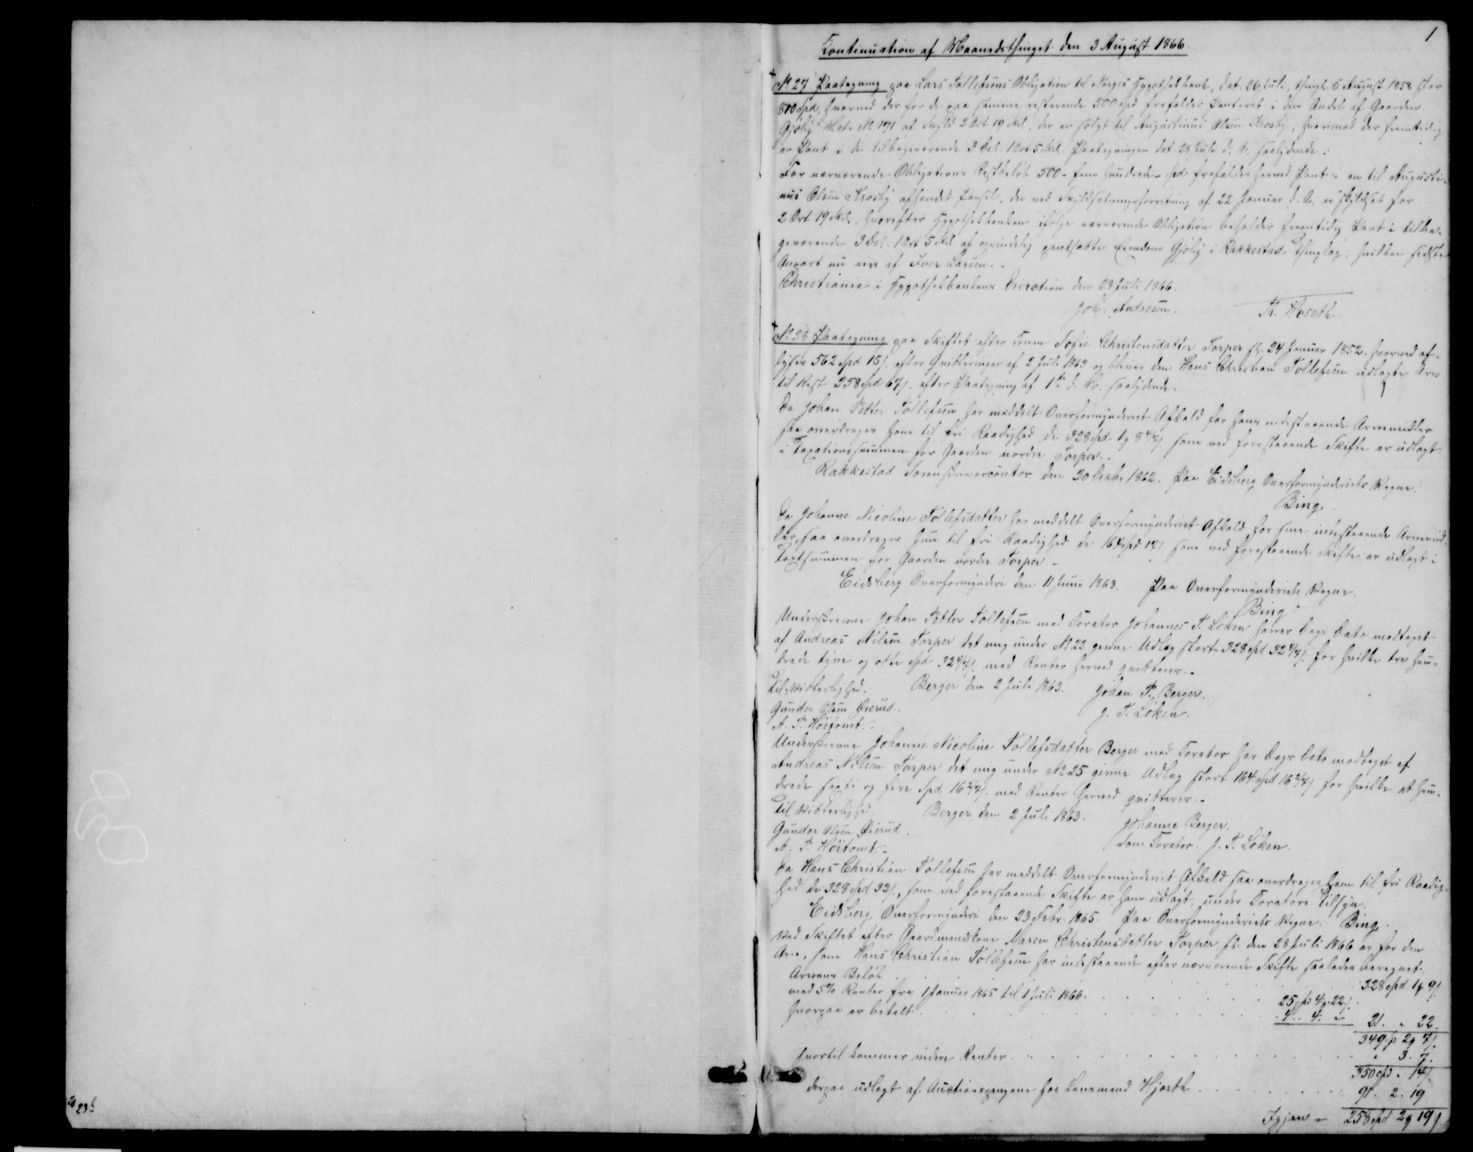 1
Continuation af Maanedsthinget den 3 August 1866.
No 27 Paategning paa Lars Tollefsens Obligation til Norges Hypothekbank, dat. 26 Juli, thingl. 5 August 1858 stor
800 Spd, hvorved der for de paa samme resterende 500 Spd frafaldes Panteret i den Andel af Gaarden
Gjølby Matr. No 171 af Skyld 2 Ort 19 Skl, der er solgt til Augustinus Olsen Krosby, hvorimod der fremtidig
er Pant i de tilbageværende 3 Dal. 1 Ort 5 Skl. Paategningen dat 28 Juli d. A. saalydende:
For nærværende Obligations Restbeløb 500 - fem hundrede - Spd frafaldes herved Pant i en til Augusti-
nus Olsen Krosby afhændet Parsel, der ved Skyldsætningsforretning af 22 Januar d. A. er skyldsat for
2 Ort 19 Skl, hvorefter Hypothekbanken ifølge nærværende Obligation beholder fremtidig Pant i tilba-
geværende 3 Dal. 1 Ort 5 Skl af oprindelig pantsatte Eiendom Gjølby i Rakkestad Thinglag, hvilken sidste
Anpart nu eies af Iver Larsen. -
Christiania i Hypothekbankens Direction den 28 Juli 1866.
Joh. Andresen. Th. Horeth
No 28 Paategning paa Skiftet efter Sofie Christensdatter Torper sl. 24 Januar 1852, hvorved af-
lyses 562 Spd 15 s, efter Qvitteringer af 2 Juli 1863 og bliver den Hans Christian Tollefsen udlagte Arv
til Rest 258 Spd 67 s. efter Paategning af 1ste d. M. saalydende.
Da Johan Petter Tollefsen har meddelt Overformynderiet Afkald for hans indestaaende Arvemidler
saa overdrages ham til fri Raadighed de 328 Spd 1 8 som ved forestaaende Skifte er udlagt
i Taxationssummen for Gaarden nordre Torper. -
Rakkestad Sorenskrivercontor den 30 1862. Paa Eidsberg Overformynderiets Vegne.
Bing.
Da Johanne Nicoline Tollefsdatter har meddelt Overformynderiet Afkald for sine indestaaende Arvemid-
ler, saa overdrages hun til fri Raadighed de 164 Spd som ved forestaaende Skifte er udlagt i
Taxtsummen for Gaarden nordre Torper -
Eidsberg Overformynderi den 11 Juni 1863. Paa Overformynderiets Vegne.
Bing.
Underskrevne Johan Petter Tollefsen med Curator Johannes T. Løken haver Dags Dato modtaget
af Andreas Nilsen Torper det mig under No 22 givne Udlæg stort 328 Spd 32 4/7 s. for hvilke tre hun-
drede tyve og otte Spd 32 4/7 s med Renter herved qvitteres. -
Til Vitterlighed. Berger den 2 Juli 1863. Johan P. Berger.
Gunder Olsen J. T. Løken.
A. P. Høitomt. -
Underskrevne Johanne Nicoline Tollefsdatter Berger med Curator har Dags Dato modtaget af
Andreas Nilsen Torper det mig under No 25 givne Udlæg stort 164 Spd 16 2/7 s for hvilke et hun-
drede sexti og fire Spd 16 2/7 s. med Renter herved qvitteres. -
Til Vitterlighed Berger den 2 Juli 1863. Johanne Berger.
Gunder Olsen som Curator. J. T. Løken.
A. P. Høitomt. -
Da Hans Christian Tollefsen har meddelt Overformynderiet Afkald saa overdrages ham til fri Raadig-
hed de 328 Spd 33 s, som ved forestaaende Skifte er ham udlagt, under Curators Tilsyn.
Eidsberg Overformynderi den 23 Febr. 1865. Paa Overformynderiets Vegne. Bing.
Ved Skiftet efter Gaardmandskone Maren Christensdatter Torper sl. den 28 Juli 1866 er for den
Arv, som Hans Christian Tollefsen har indestaaende efter nærværende Skifte saaledes beregnet:
Arvens Beløb 328 Spd 1 9
med 5% Renter fra 1 Januar 1865 til 1 Juli 1866. 25 Spd 4 22
hvorpaa er betalt 4. 4. 21. " 22.
349 2 7
hvortil kommer videre Renter " 3. 7.
350 Spd " 14
derpaa udlagt af Auctionspengene hos Lensmand Hjorth 91. 2. 19
Igjen - 258 Spd 2 19
23